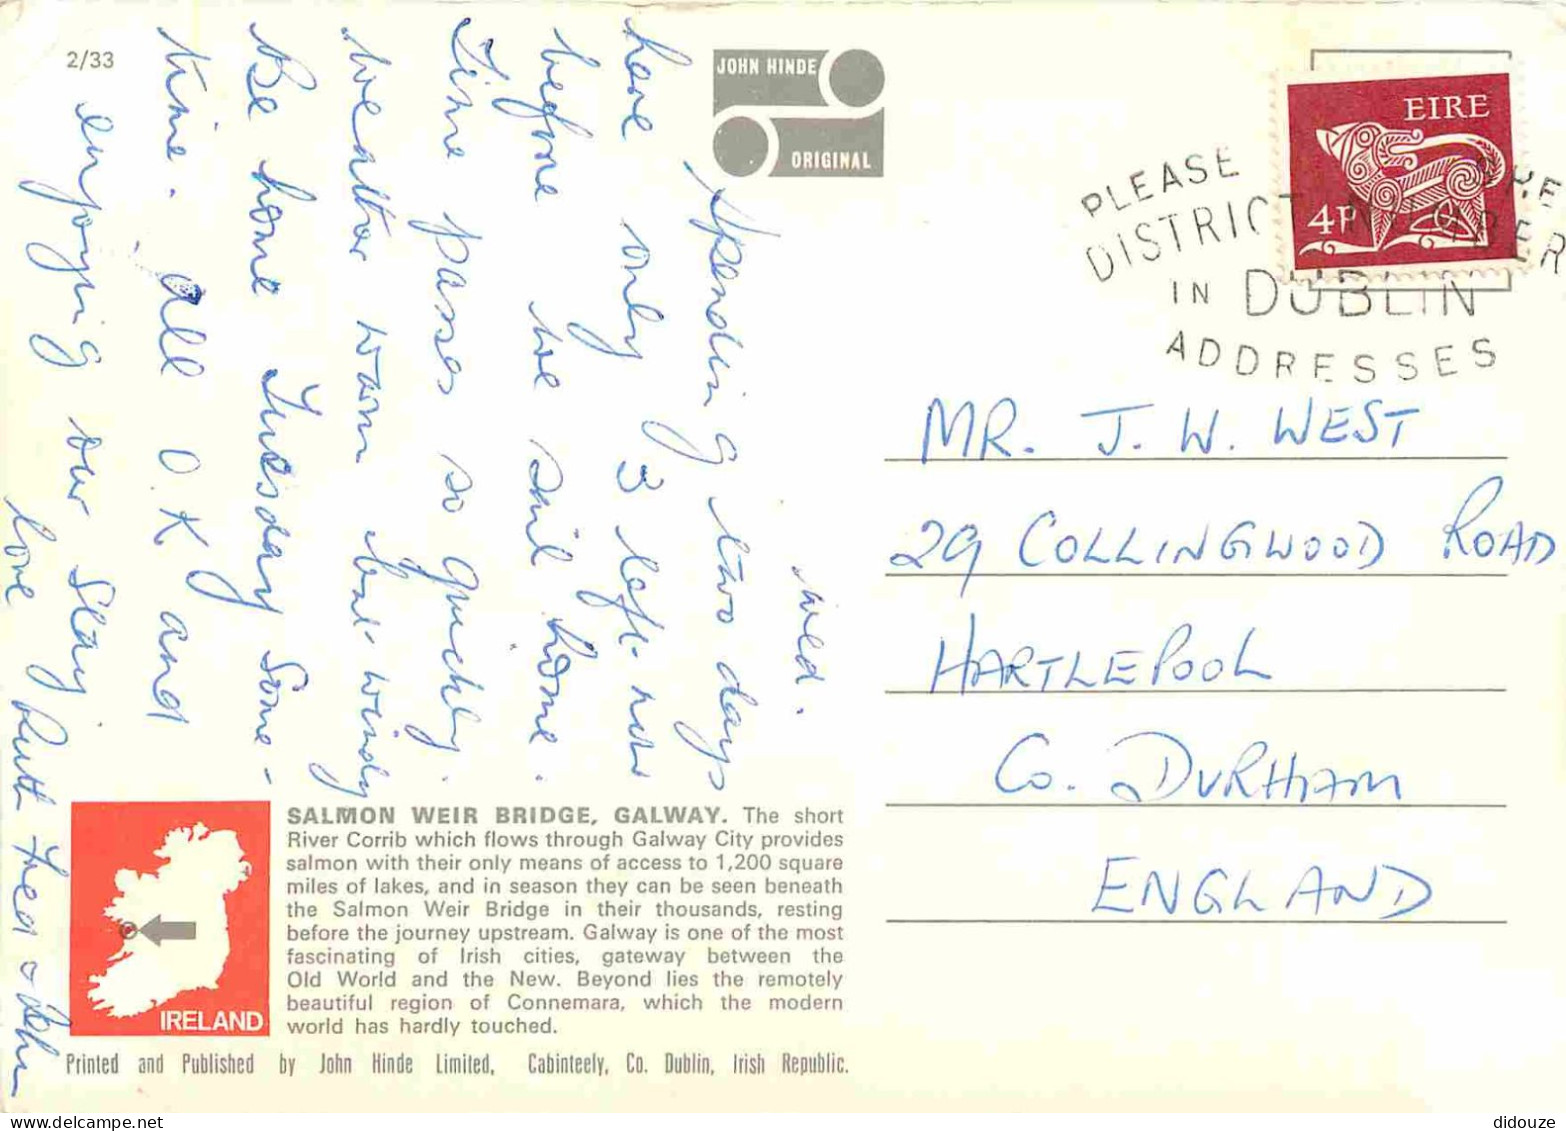 2/33
JOHN HINDE
ORIGINAL
EIRE
4P
PLEASE
DISTRICT
IN DUBLIN
ADDRESSES
Wed.
Spending two days
here only 3 left now
before we sail home.
Time passes so quickly.
Weather warm but windy
Be home Tuesday some-
time. All O.K and
enjoying our stay.
love Ruth Fred & John
MR. J. W. WEST
29 COLLINGWOOD ROAD
HARTLEPOOL
CO. DURHAM
ENGLAND
IRELAND
SALMON WEIR BRIDGE, GALWAY. The short
River Corrib which flows through Galway City provides
salmon with their only means of access to 1,200 square
miles of lakes, and in season they can be seen beneath
the Salmon Weir Bridge in their thousands, resting
before the journey upstream. Galway is one of the most
fascinating of Irish cities, gateway between the
Old World and the New. Beyond lies the remotely
beautiful region of Connemara, which the modern
world has hardly touched.
Printed and Published by John Hinde Limited, Cabinteely, Co. Dublin, Irish Republic.
didouze